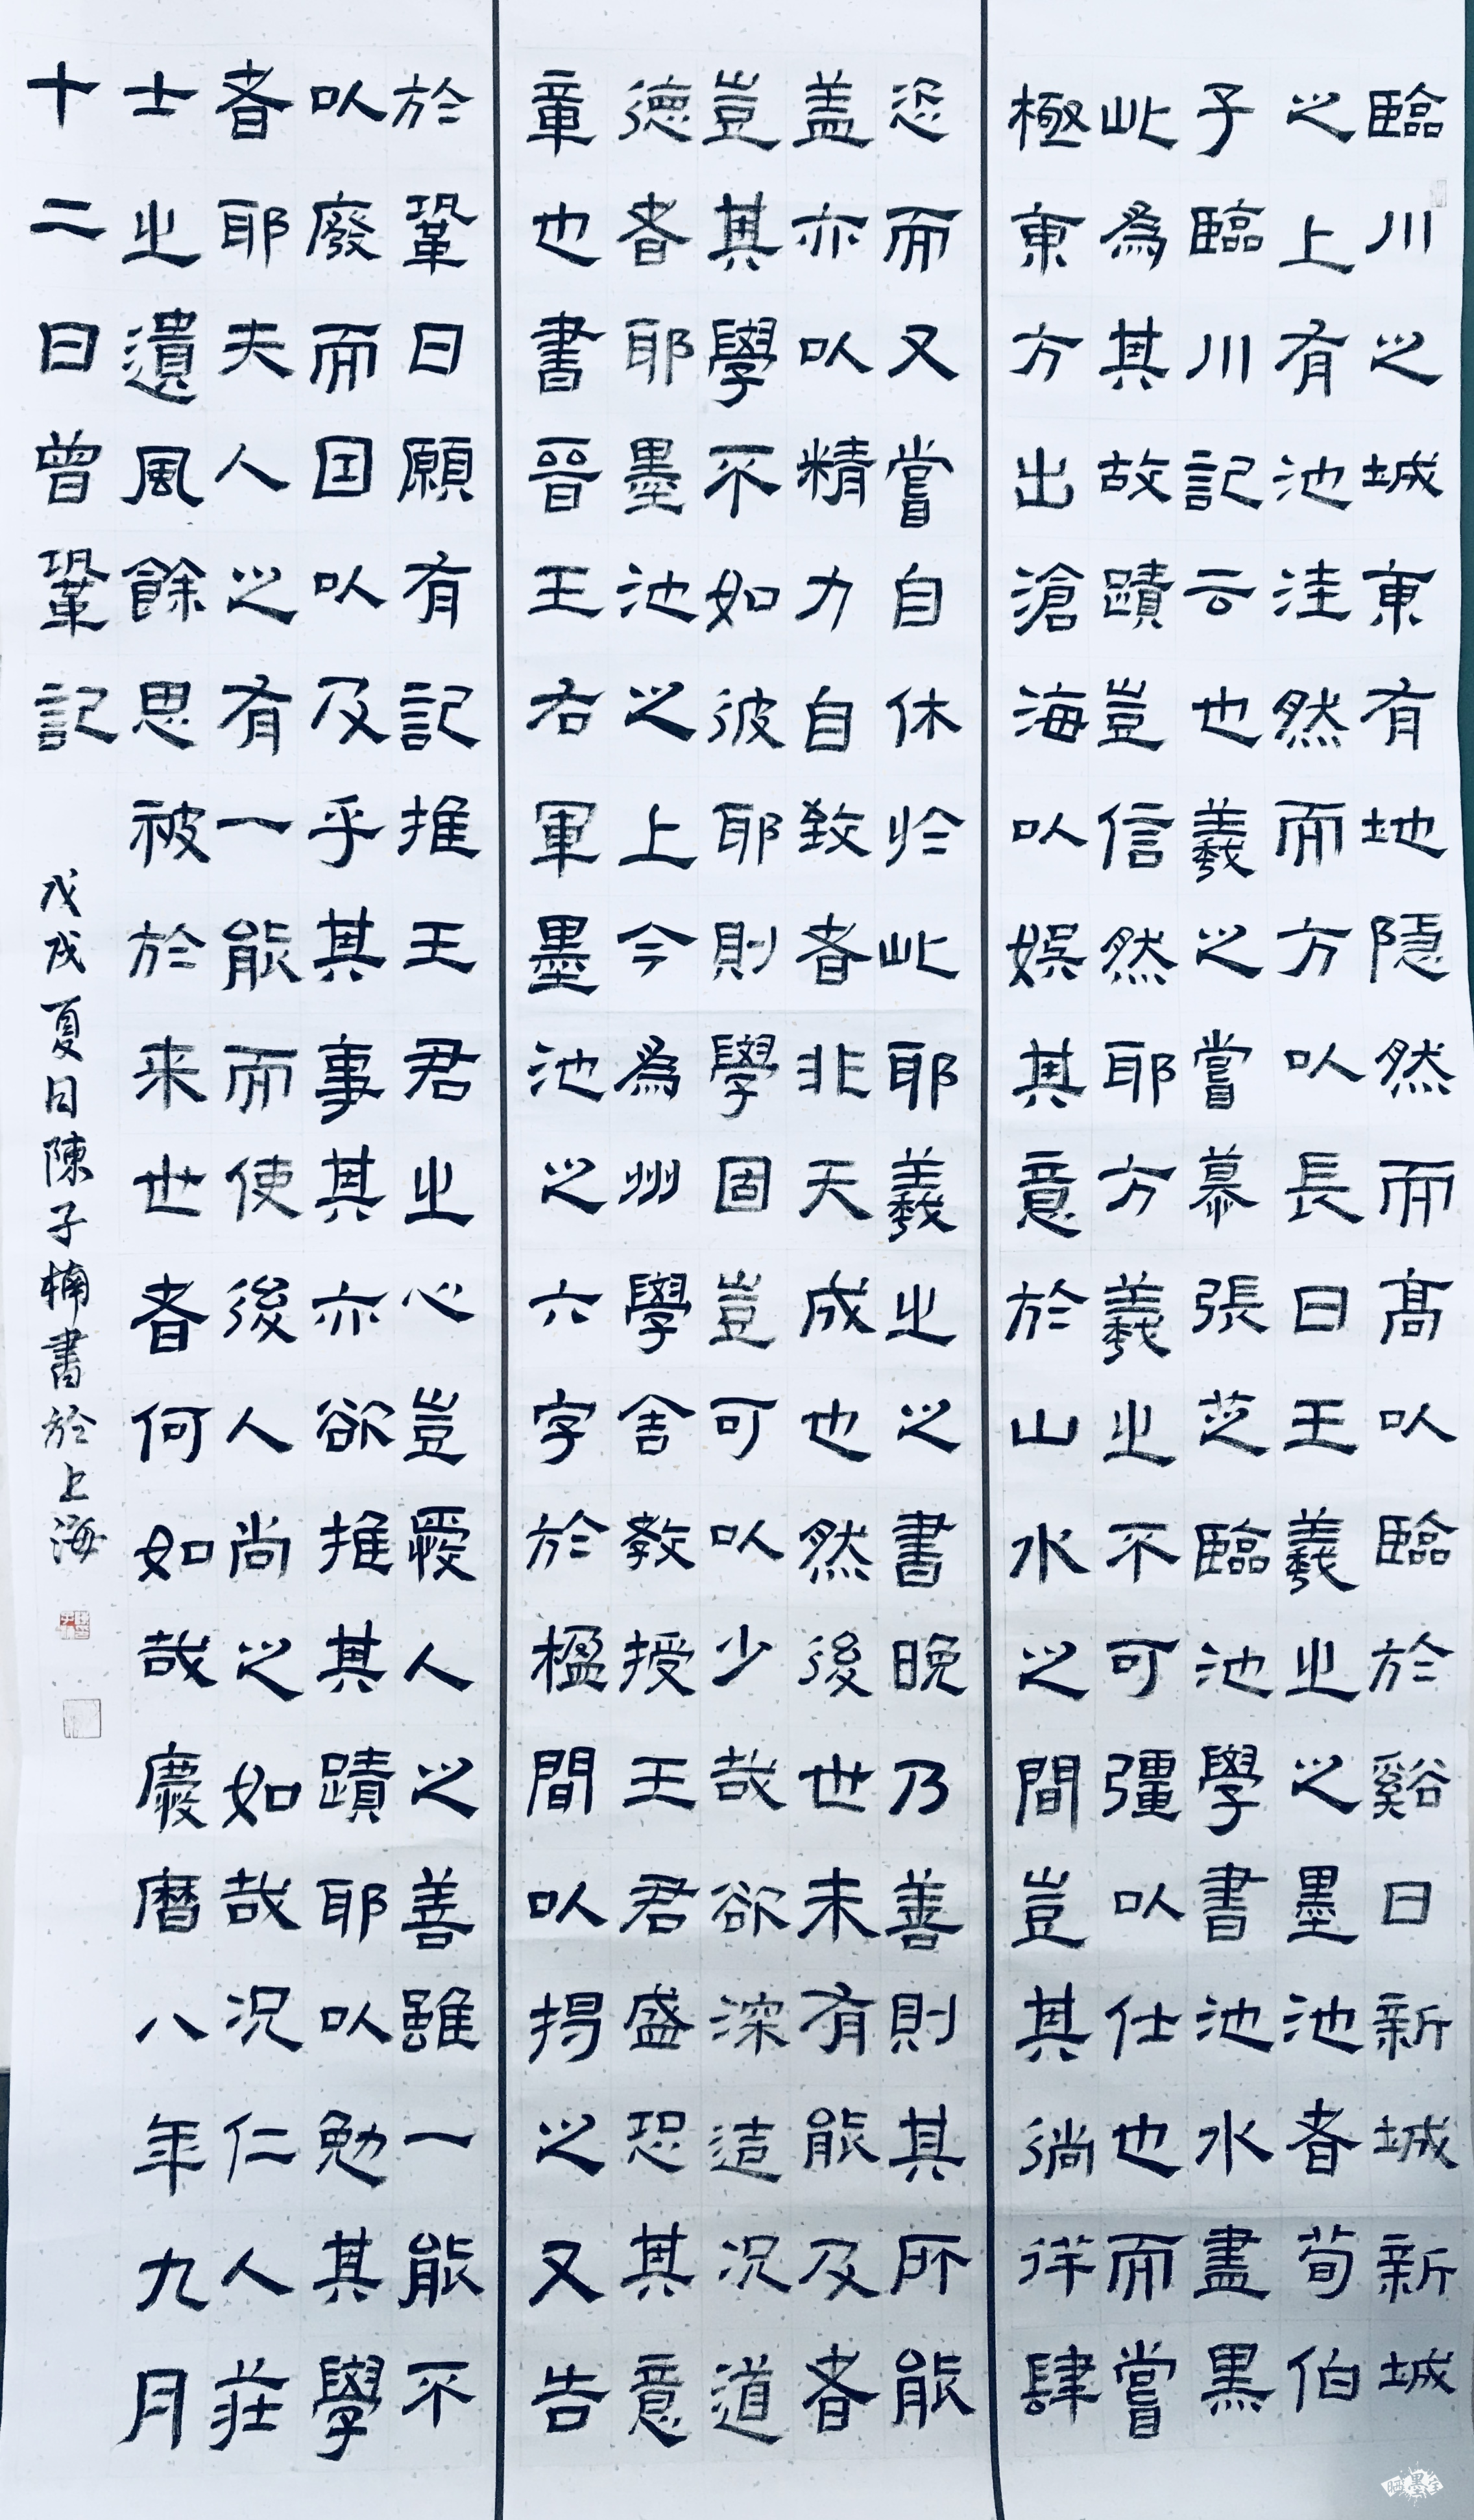 臨川之城東有地隱然而高以臨於谿曰新城新城
之上有池洼然而方以長曰王羲之之墨池者荀伯
子臨川記云也羲之嘗慕張芝臨池學書池水盡黑
此為其故蹟豈信然耶方羲之不可彊以仕也而嘗
極東方出滄海以娛其意於山水之間豈其徜徉肆
恣而又嘗自休於此耶羲之之書晚乃善則其所能
盖亦以精力自致者非天成也然後世未有能及者
豈其學不如彼耶則學固豈可以少哉欲深造况道
德者耶墨池之上今為州學舍教授王君盛恐其意
章也書晉王右軍墨池之六字於楹間以揭之又告
於鞏曰願有記推王君之心豈愛人之善雖一能不
以廢而因以及乎其事其亦欲推其蹟耶以勉其學
者耶夫人之有一能而使後人尚之如哉况仁人莊
士之遺風餘思被於来世者何如哉慶曆八年九月
十二日曾鞏記
戊戌夏日陳子楠書於上海